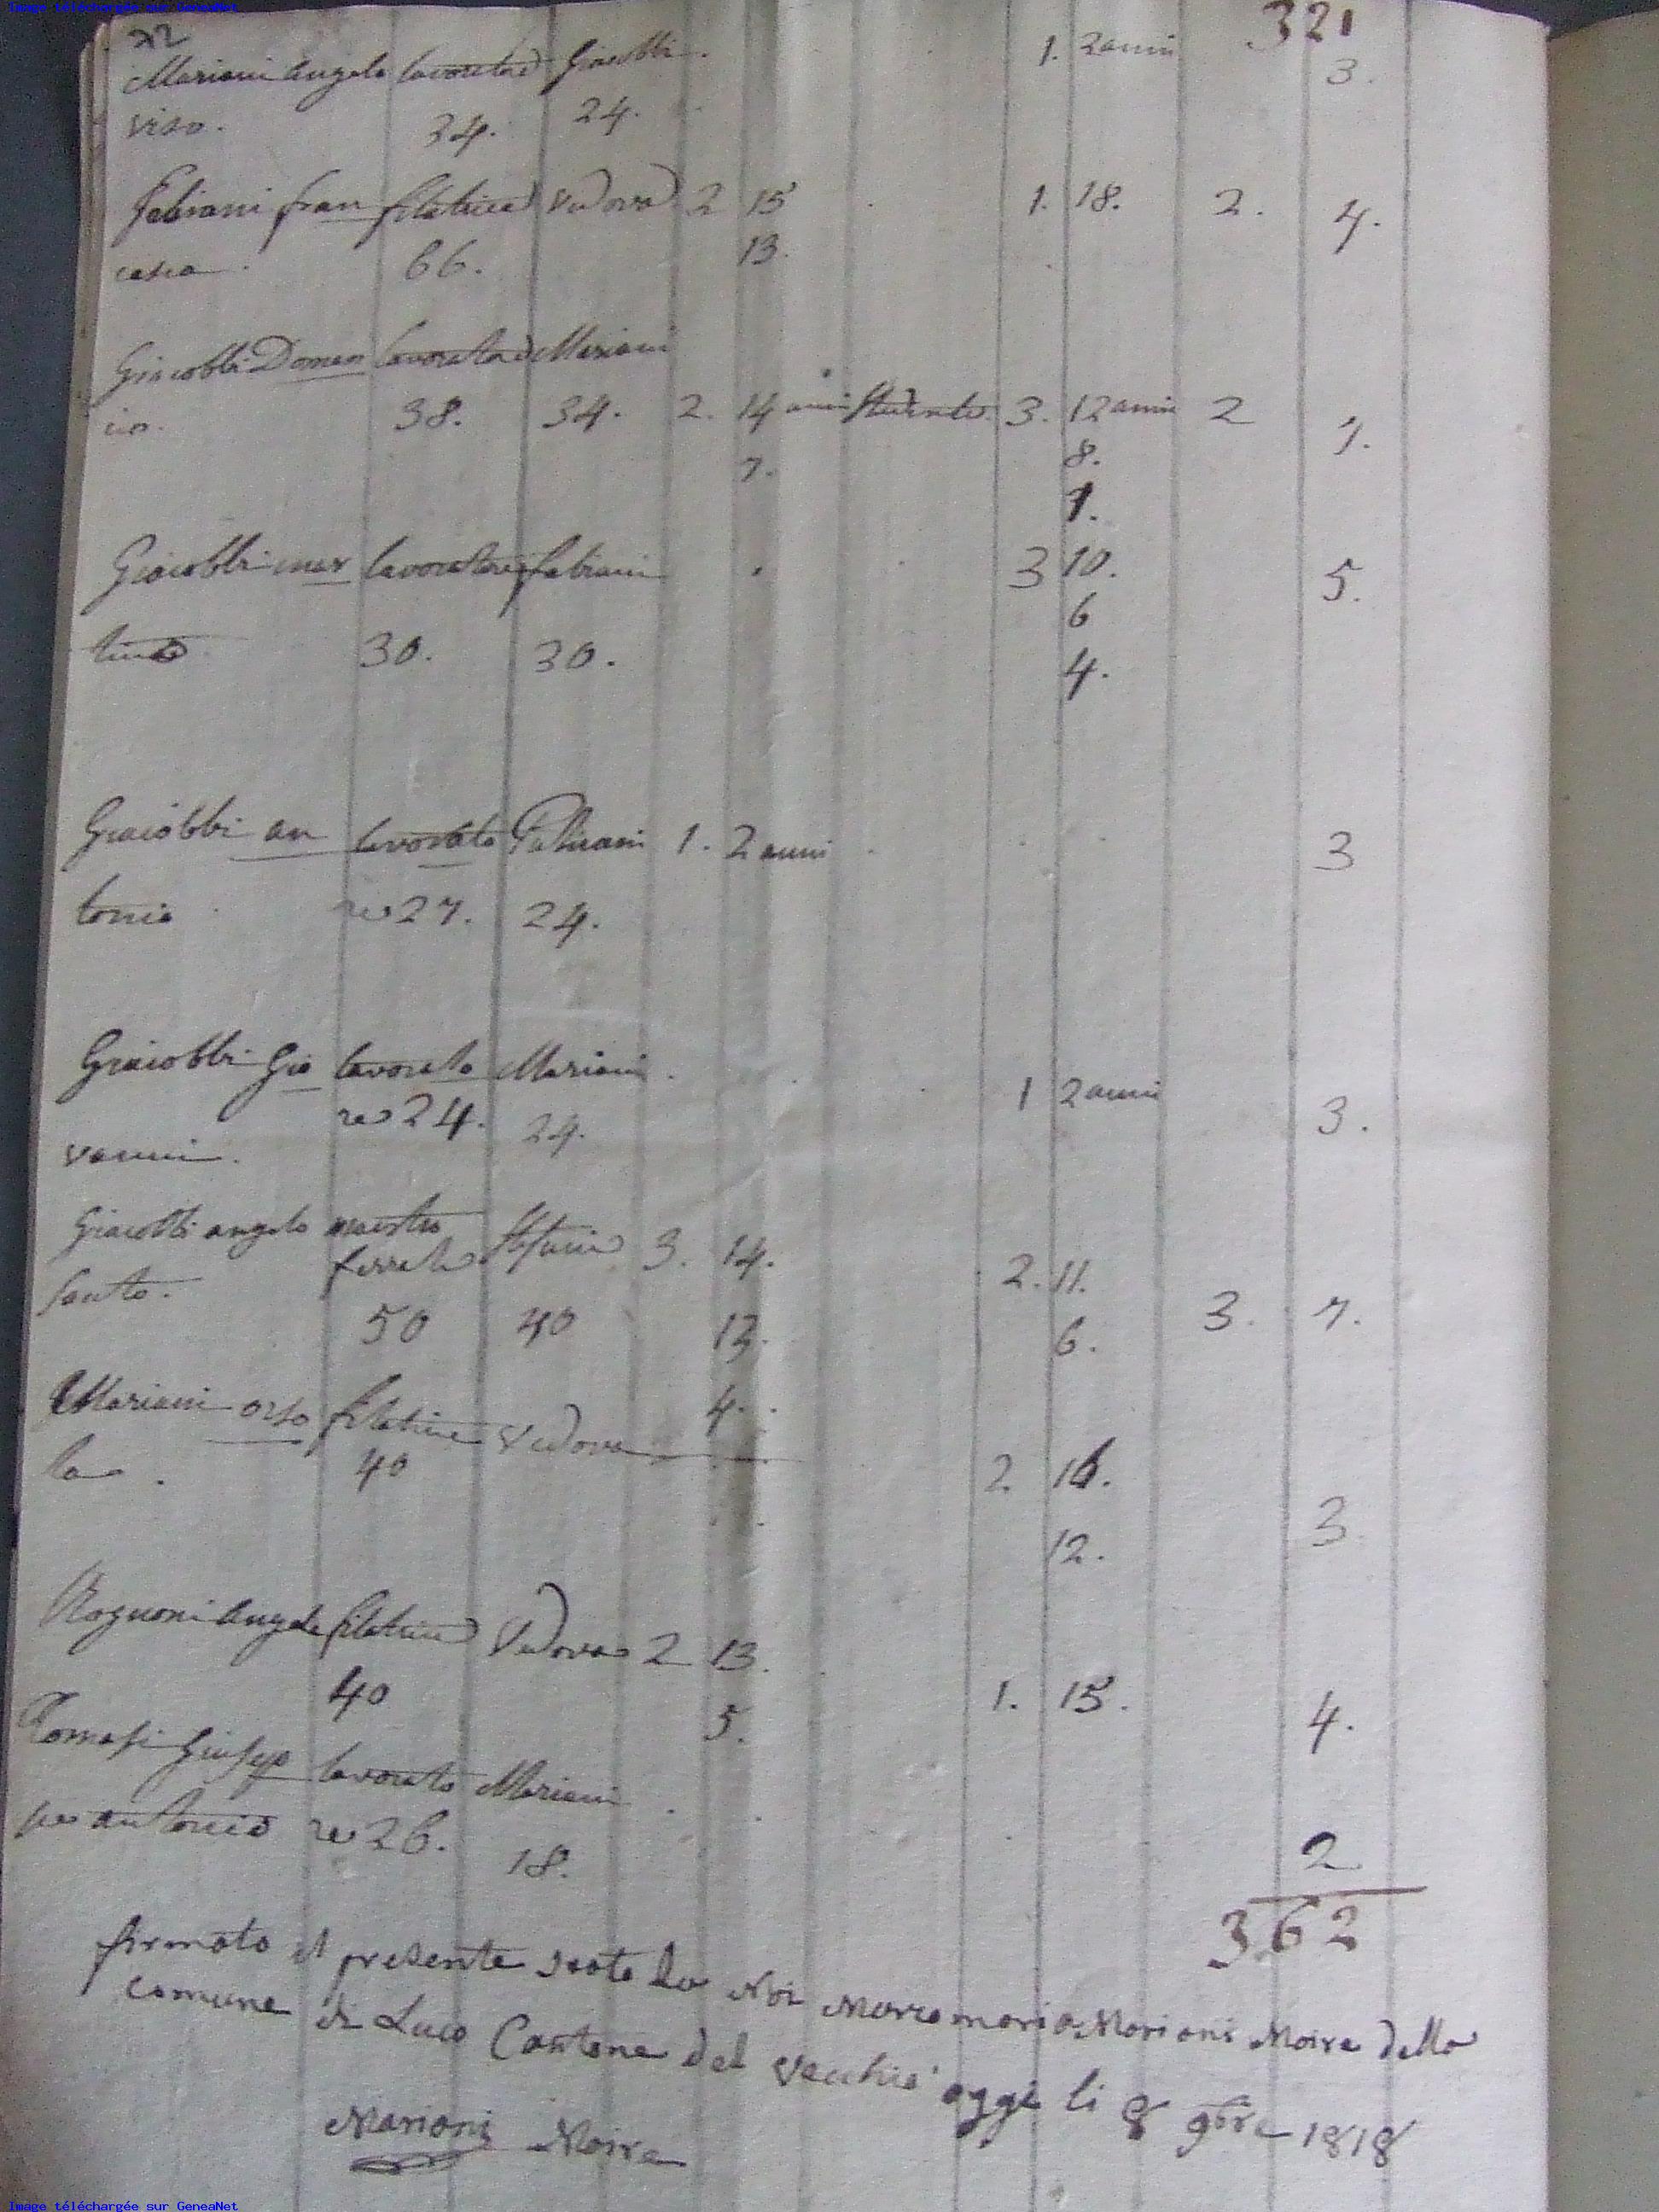 Image téléchargée sur GeneaNet
22 321
Mariani Angelo lavoratore Giacobbi. 1. 2 anni 3.
viso. 34. 24.
Fabiani fran filatrice Vedova 2 15 1. 18. 2. 4.
cesca. 66. 13.
Giacobbi Domen lavoratore Mariani
ico. 38. 34. 2. 14 anni Studente 3. 12 anni 2 7.
7. 8.
1.
Giacobbi mar lavoratore fabiani 3 10. 5.
6
tino 30. 30. 4.
Giacobbi an lavorato Fabiani 1. 2 anni 3
tonio re 27. 24.
Giacobbi Gio lavorato Mariani. 1 2 anni 3.
vanni. re 24. 24.
Giacobbi angelo maestro
Santo. ferraro 3. 14. 2. 11. 3. 7.
50 40 13. 6.
4.
Mariani orso filatrice Vedova
la. 40 2 16. 3
12.
Rognoni Angela filatrice Vedova 2 13.
40 5. 1. 15. 4.
Tomasi Giusep lavorato Mariani.
pe antonio re 26. 18. 2
362
firmato il presente stato da Noi Marcomaria Mariani Maire della
comune di Luco Cantone del Vecchio oggi li 8 9bre 1818
Mariani Maire
Image téléchargée sur GeneaNet